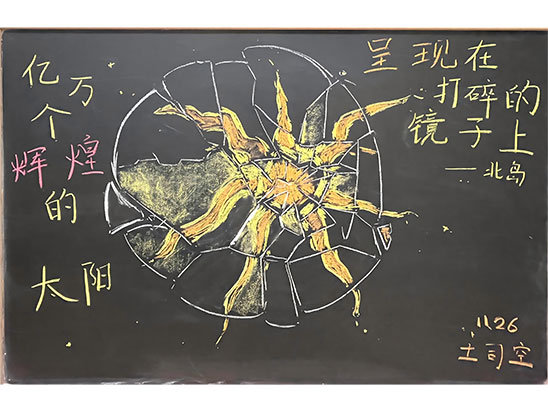 亿万
个
辉煌
的
太阳
呈现在
打碎的
镜子上
——北岛
11.26
土司空